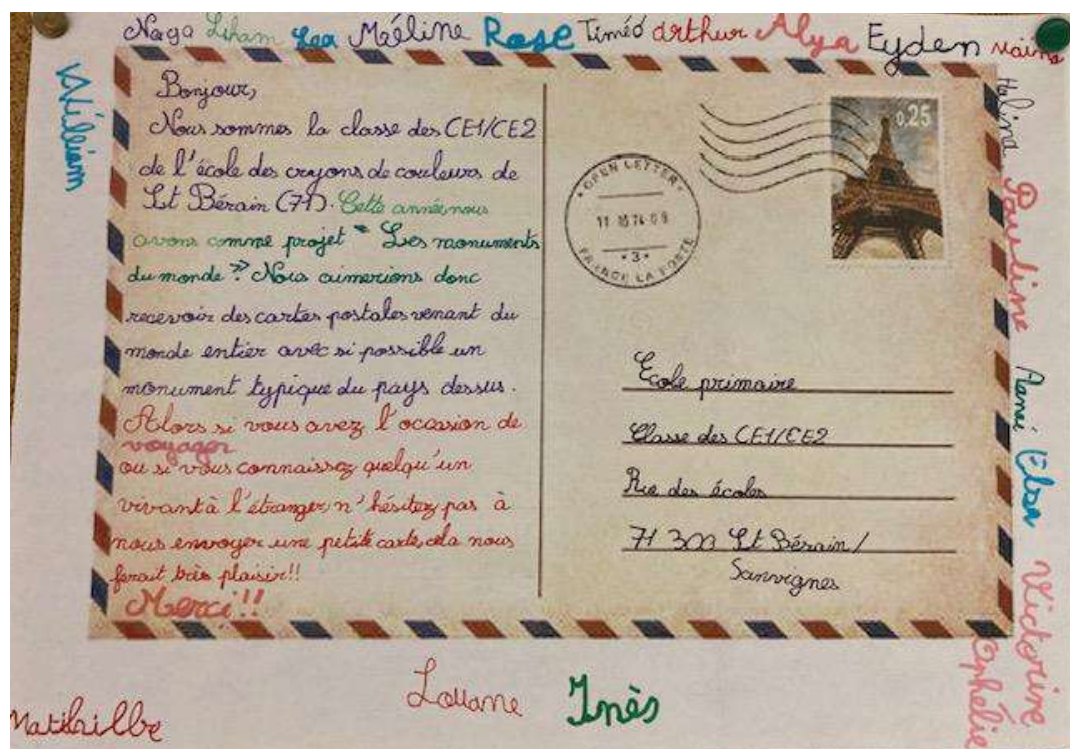 Naya Liham Lea Méline Rose Timéo Arthur Alya Eyden
William
Bonjour,
Nous sommes la classe des CE1/CE2
de l'école des crayons de couleurs de
St Bérain (71). Cette année nous
avons comme projet " Les monuments
du monde ". Nous aimerions donc
recevoir des cartes postales venant du
monde entier avec si possible un
monument typique du pays dessus.
Alors si vous avez l'occasion de
voyager
ou si vous connaissez quelqu'un
vivant à l'étranger, n'hésitez pas à
nous envoyer une petite carte, cela nous
ferait très plaisir!!
Merci!!
0,25
OPEN LETTER
FRANCE LA POSTE
*3*
Ecole primaire
Classe des CE1/CE2
Rue des écoles
71 300 St Bérain/
Sanvignes
Halina
Pauline
Elsa
Victorine
Ophélie
Louane Inès